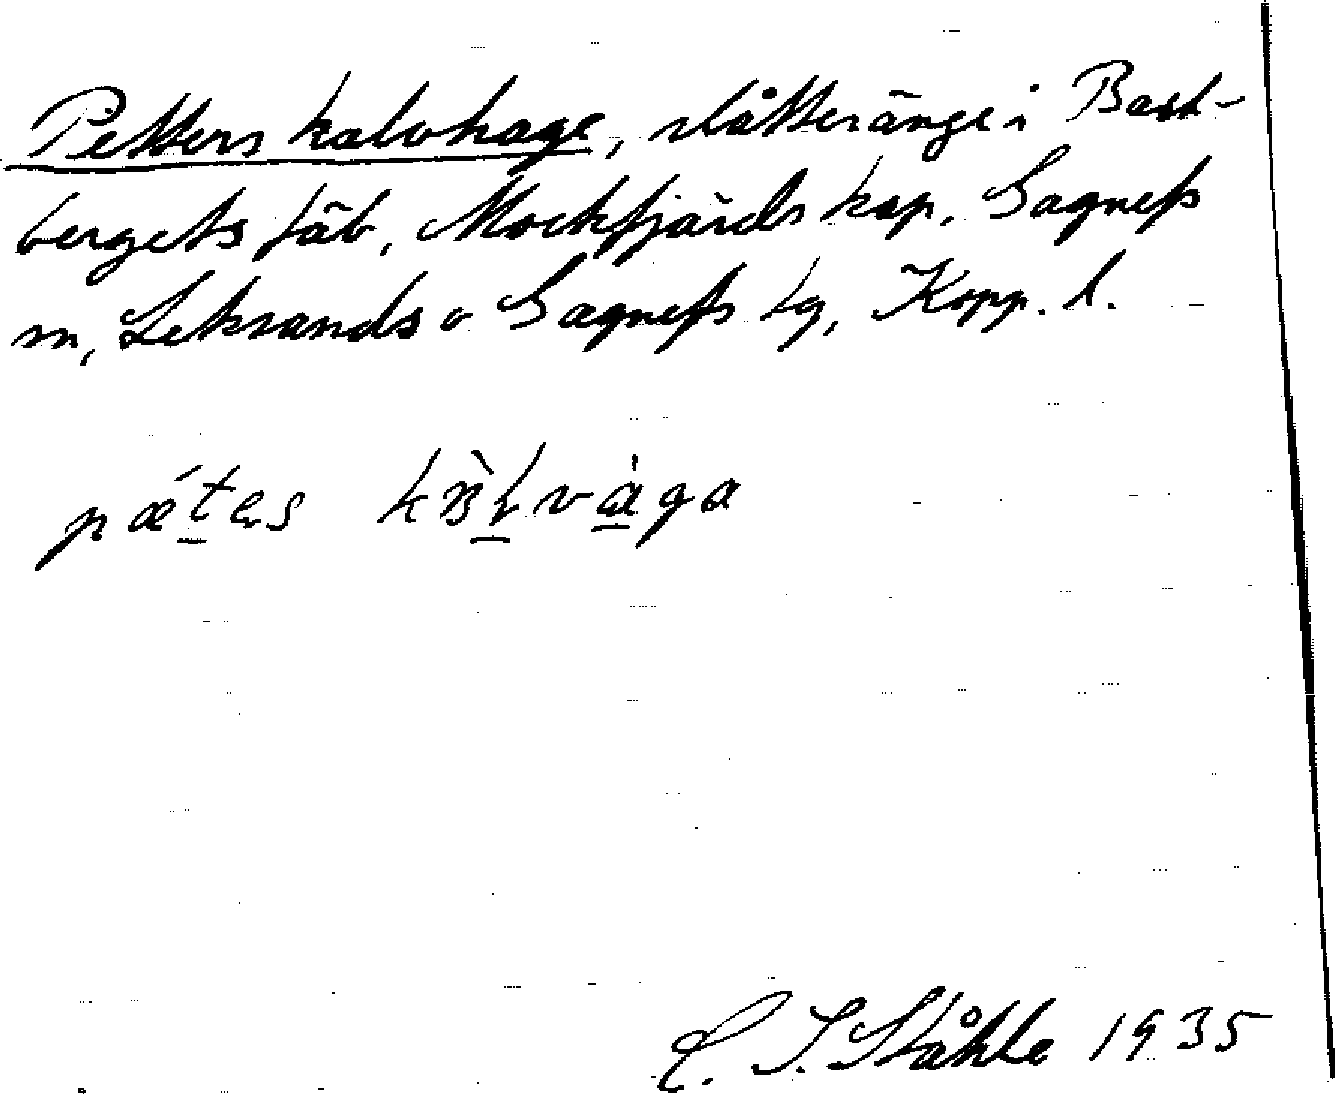 Petters kalvhage, slåtteränge i Bast-
bergets fäb, Mockfjärds kap, Gagnefs
m, Leksands o Gagnefs tg, Kopp. l.
C. I. Ståhle 1935